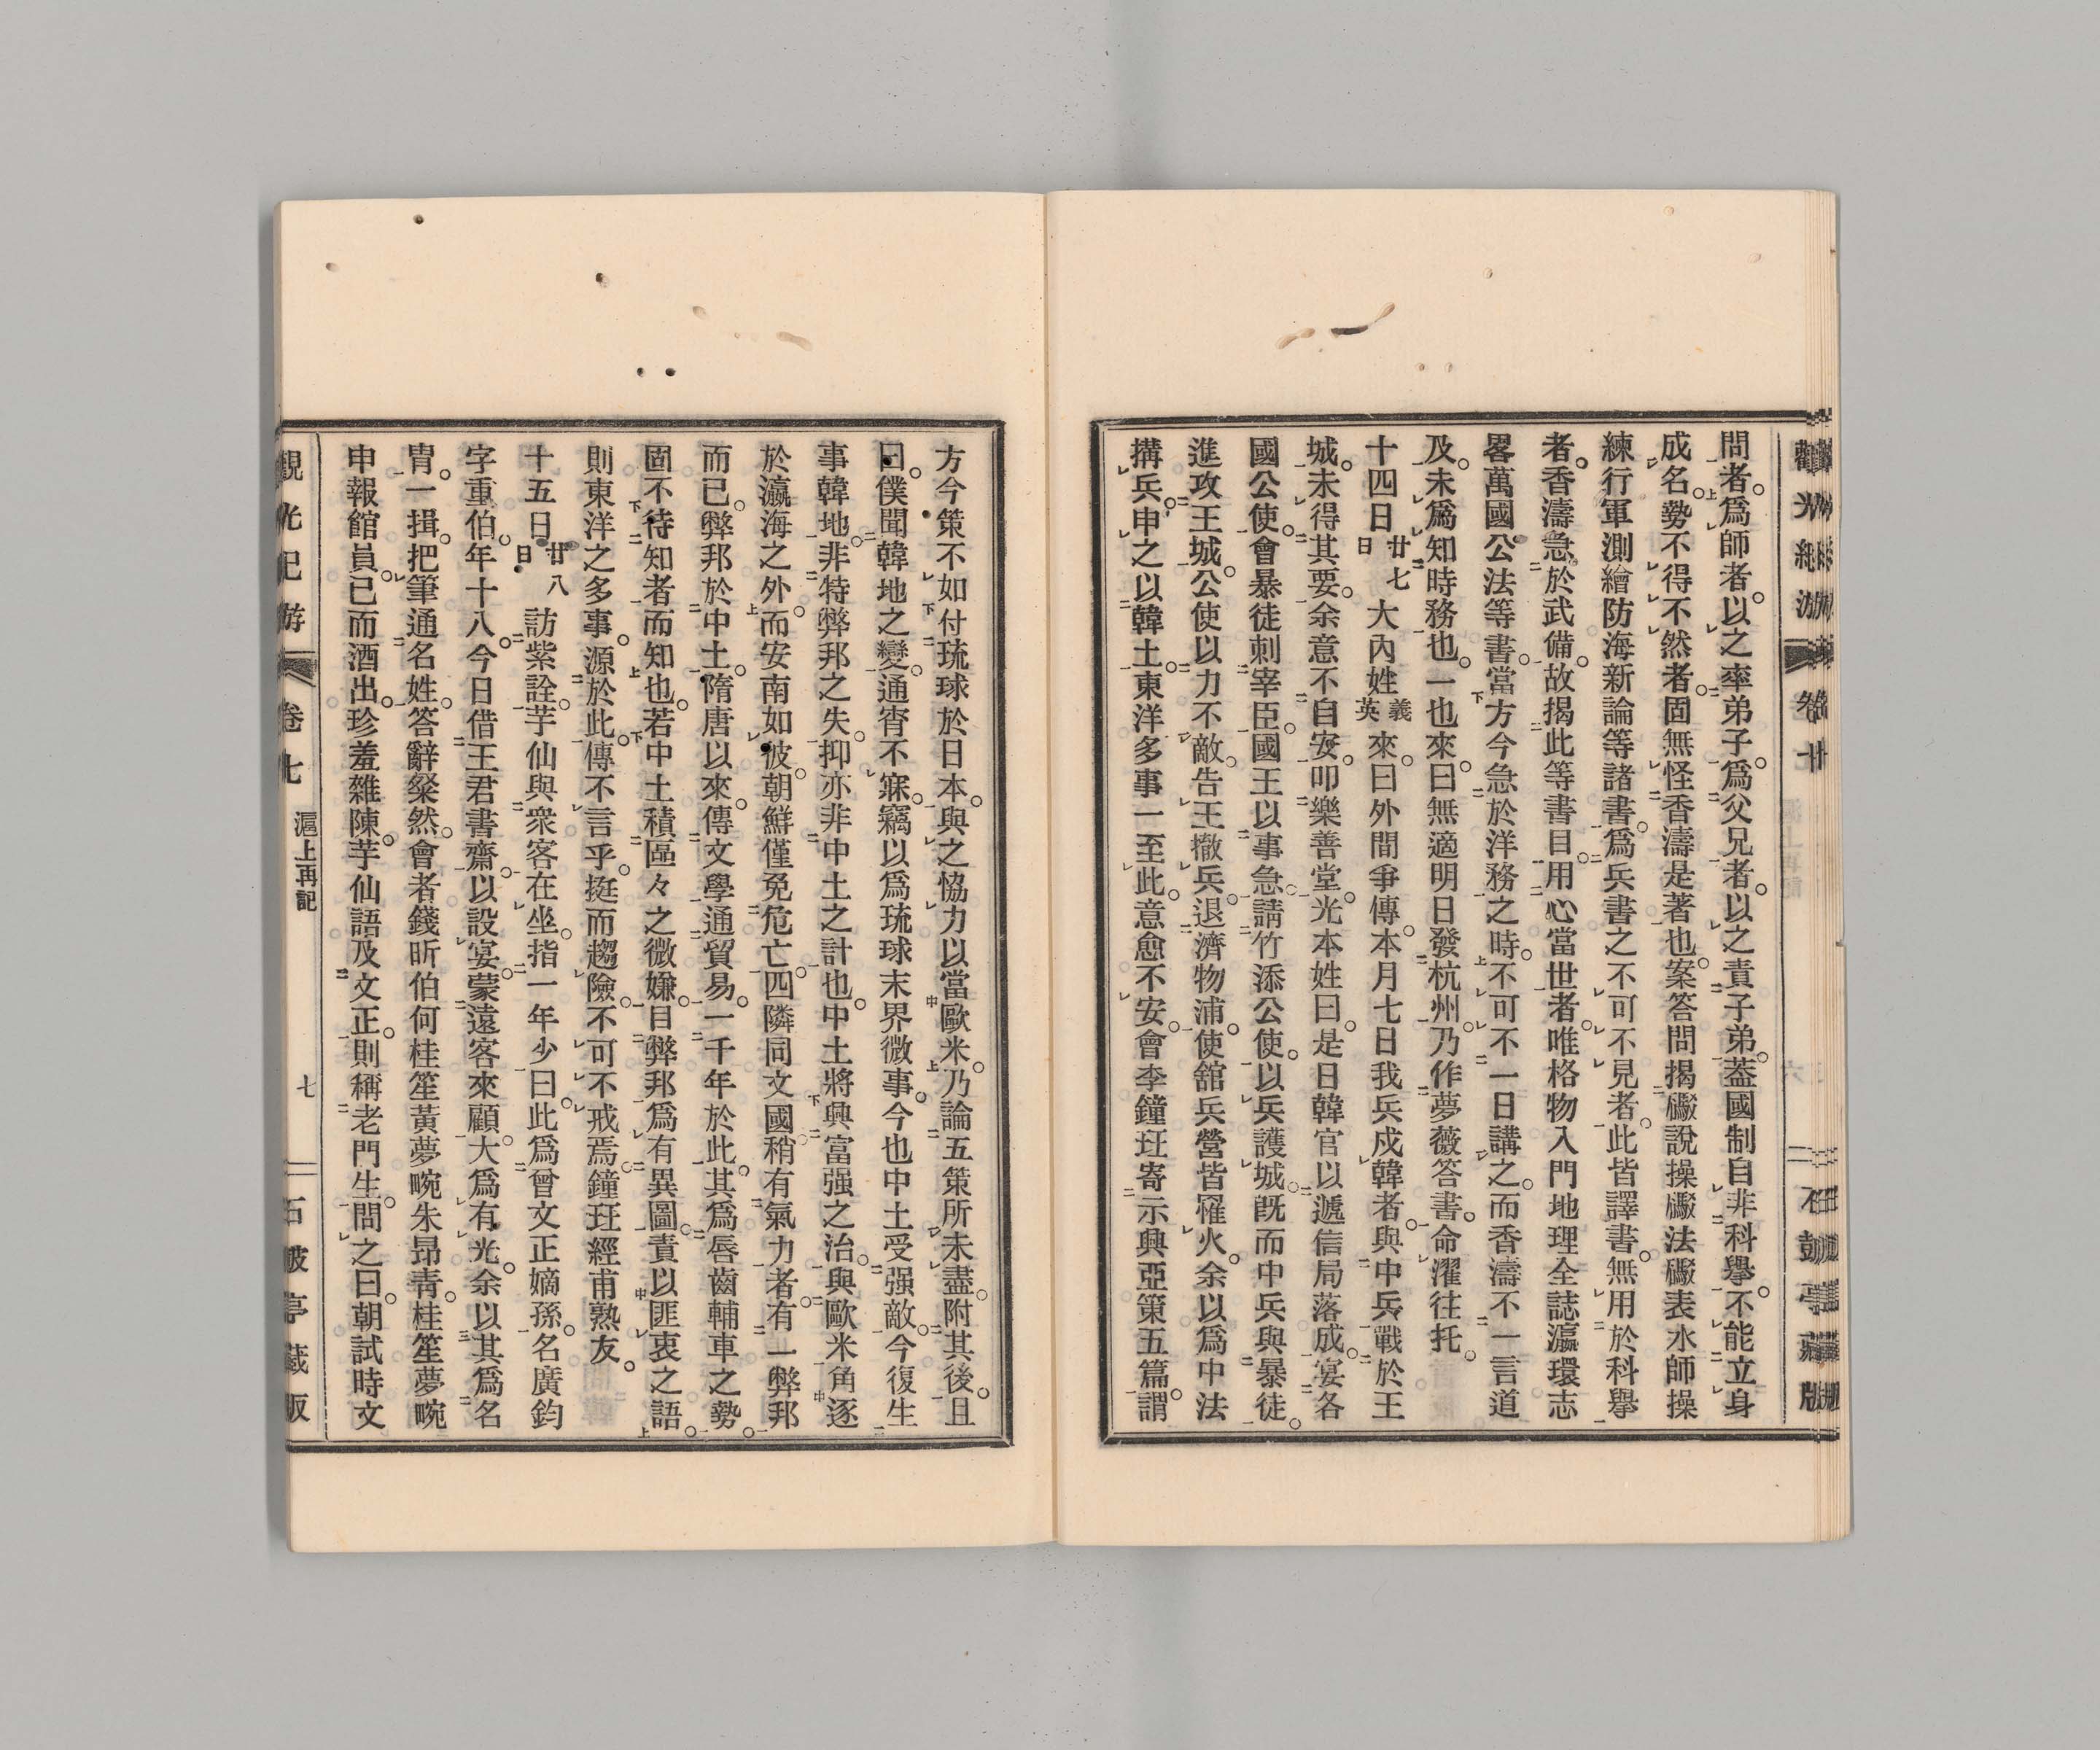 問者。爲師者。以之率弟子。爲父兄者。以之責子弟。葢國制自非科擧。不能立身
成名。勢不得不然者。固無怪香濤是著也。案答問揭礮說操礮法礮表水師操
練行軍測繪防海新論等諸書。爲兵書之不可不見者。此皆譯書。無用於科擧
者。香濤急於武備。故揭此等書目。用心當世者。唯格物入門地理全誌瀛環志
畧萬國公法等書。當方今急於洋務之時。不可不一日講之。而香濤不一言道
及。未爲知時務也。一也來。曰無適明日發杭州。乃作夢薇答書。命濯往托。
十四日廿七日大內姓義英來。曰外間爭傳。本月七日我兵戍韓者。與中兵戰於王
城。未得其要。余意不自安。叩樂善堂。光本姓曰。是日韓官以遞信局落成。宴各
國公使。會暴徒刺宰臣。國王以事急。請竹添公使。以兵護城。旣而中兵與暴徒。
進攻王城。公使以力不敵。告王撤兵。退濟物浦。使舘兵營皆罹火。余以爲中法
搆兵。申之以韓土。東洋多事一至此。意愈不安。會李鐘珏寄示興亞策五篇。謂
方今策不如付琉球於日本。與之恊力以當歐米。乃論五策所未盡。附其後。且
曰。僕聞韓地之變。通宵不寐。竊以爲琉球末界微事。今也中土受强敵。今復生
事韓地。非特弊邦之失。抑亦非中土之計也。中土將興富强之治。與歐米角逐
於瀛海之外。而安南如彼。朝鮮僅免危亡。四隣同文國稍有氣力者。有一弊邦
而已。弊邦於中土。隋唐以來。傳文學通貿易。一千年於此。其爲唇齒輔車之勢。
固不待知者而知也。若中土積區々之微嫌。目弊邦爲有異圖。責以匪衷之語。
則東洋之多事。源於此。傳不言乎。挺而趨險。不可不戒焉。鐘珏經甫熟友。
十五日廿八日訪紫詮。芋仙與衆客在坐。指一年少曰。此爲曾文正嫡孫。名廣鈞
字重伯。年十八。今日借王君書齋。以設宴。蒙遠客來顧。大爲有光。余以其爲名
冑。一揖。把筆通名姓。答辭粲然。會者錢昕伯何桂笙黃夢畹朱昻靑。桂笙夢畹
申報館員。已而酒出。珍羞雜陳。芋仙語及文正。則稱老門生。問之曰。朝試時文
觀光紀游
卷七
滬上再記
七